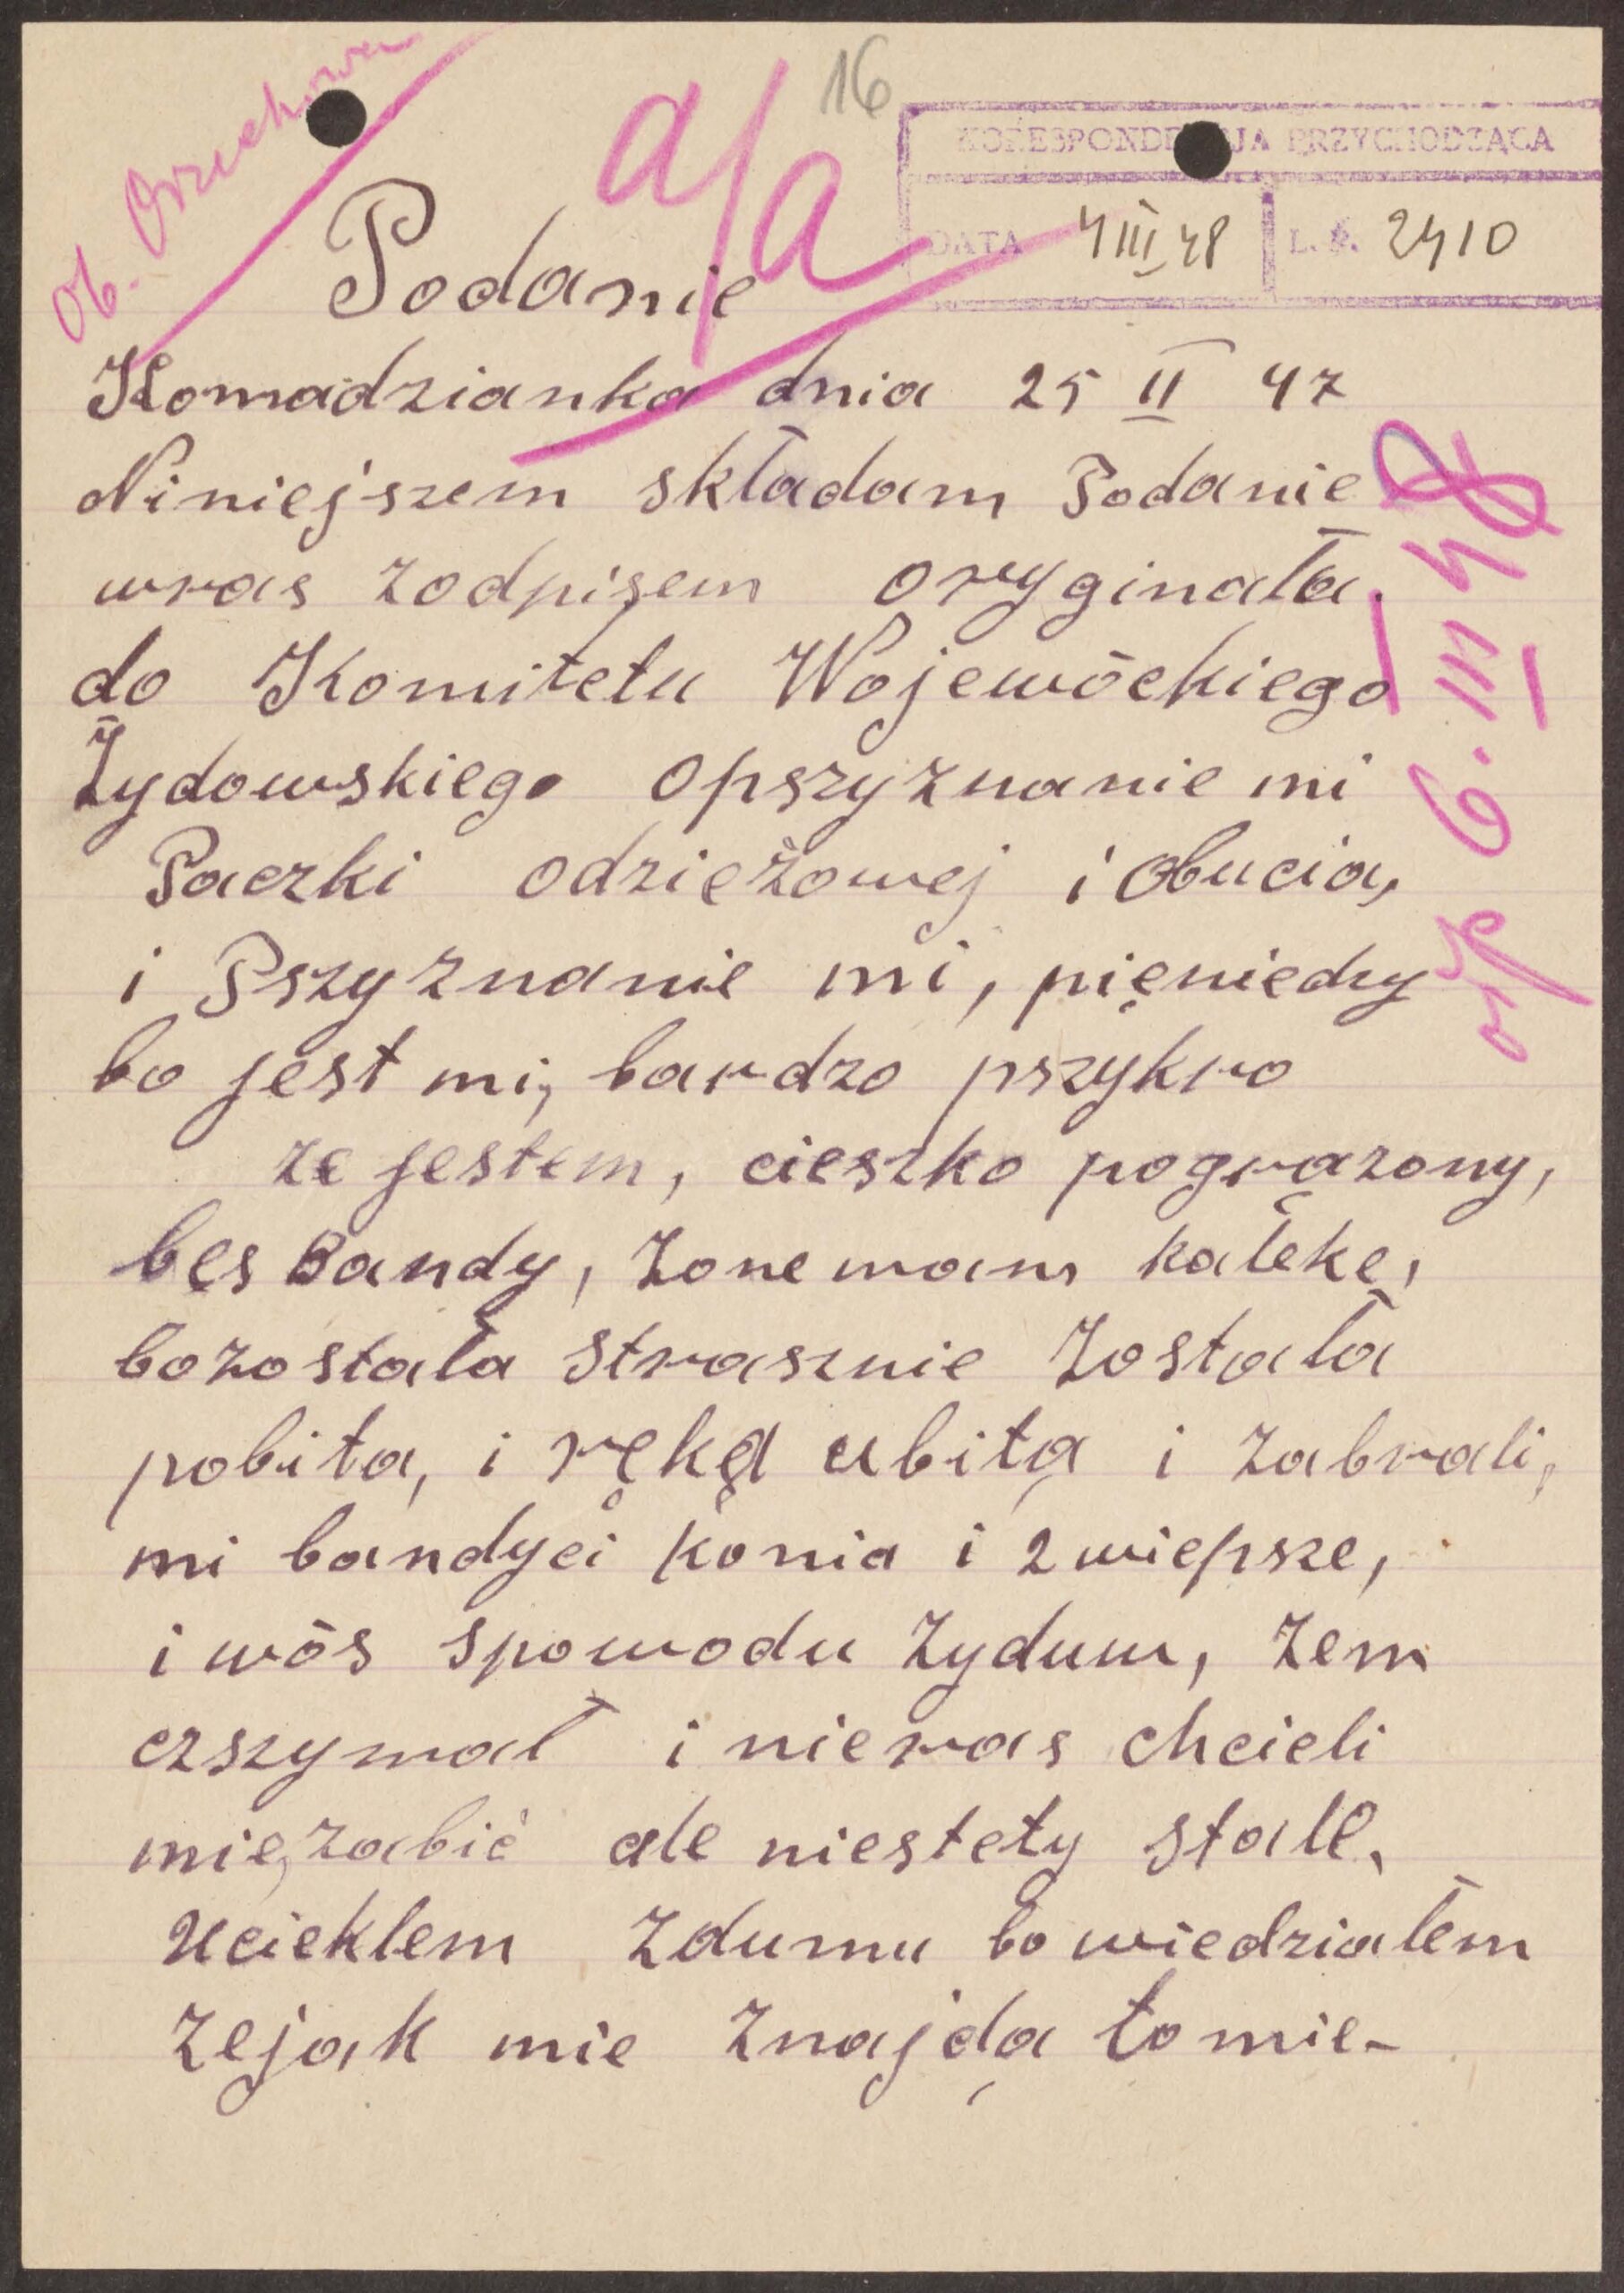 16
ob. Orzechowa
a/a
KORESPONDENCJA PRZYCHODZĄCA
DATA 4 III 48 L. dz. 2410
Podanie
Komadzianka dnia 25 II 47
Niniejszem składam Podanie
wras zodpisem oryginała
do Komitetu Wojewóckiego
Żydowskiego opszyznanie mi
Paczki odzieżowej i Obucia,
i Pszyznanie mi, pięniedzy
bo jest mi, bardzo pszykro
ze jestem, cieszko pogrązony,
bes Bandy, Zone mam kałeke,
bozostała strasznie Została
pobita, i ręką ubitą i Zabrali,
mi bandyci konia i 2 wiepsze,
i wós spowodu Zyduw, Zem
czszymał i nieras chcieli
mie, zabić ale niestety stale,
Uciekłem Zdumu bo wiedziałem
Zejak mie Znajdą to mie-
6. III 48